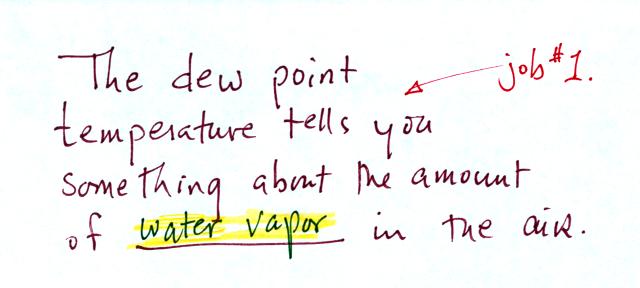 The dew point
job #1.
temperature tells you
something about the amount
of water vapor in the air.